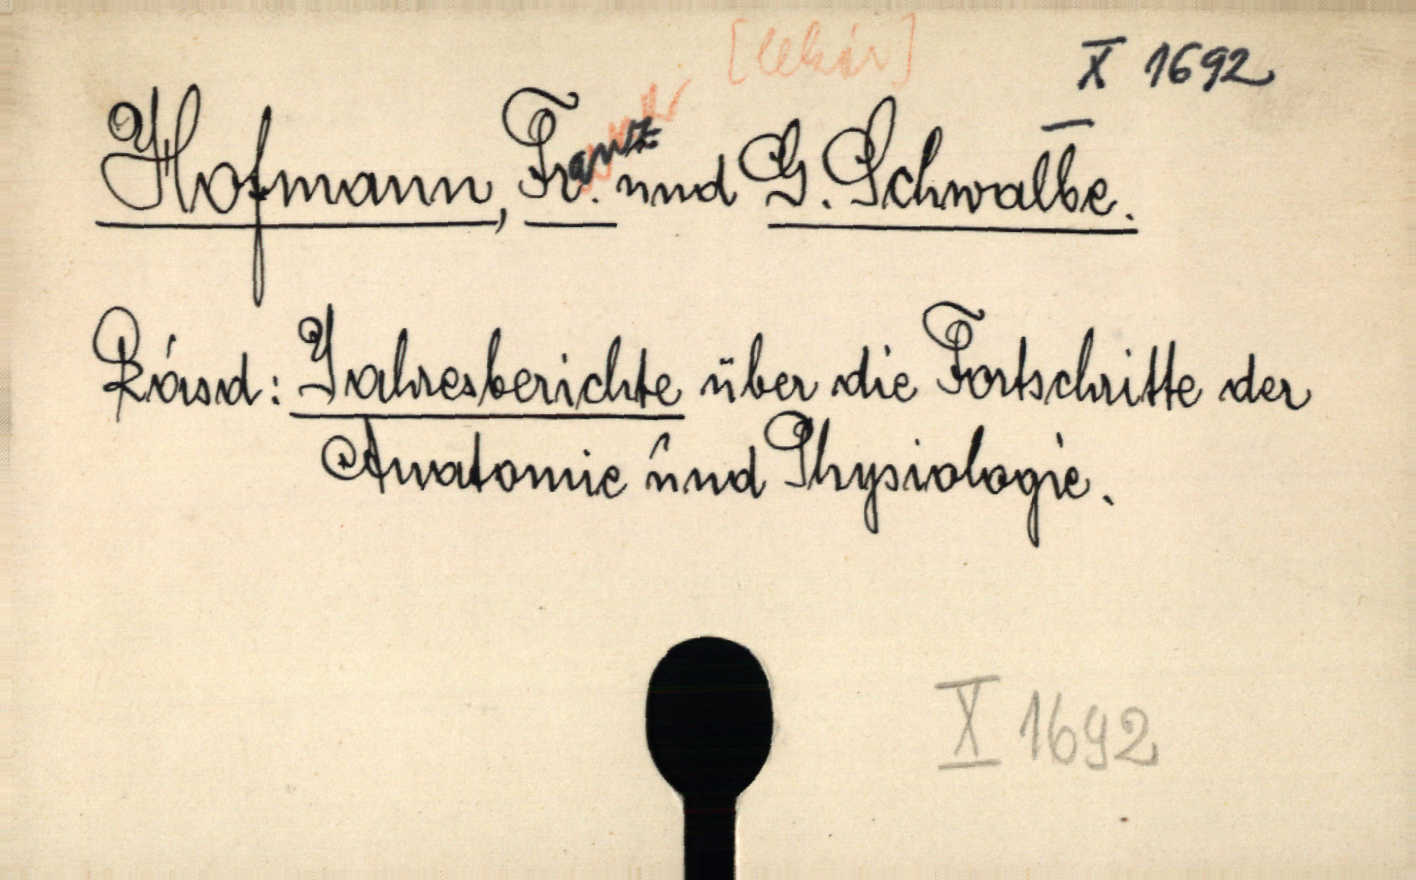 [lekár]
X 1692
Hofmann, Franz und G. Schwalbe.
Rásd: Jahresberichte über die Fortschritte der
Anatomie und Physiologie.
X 1692